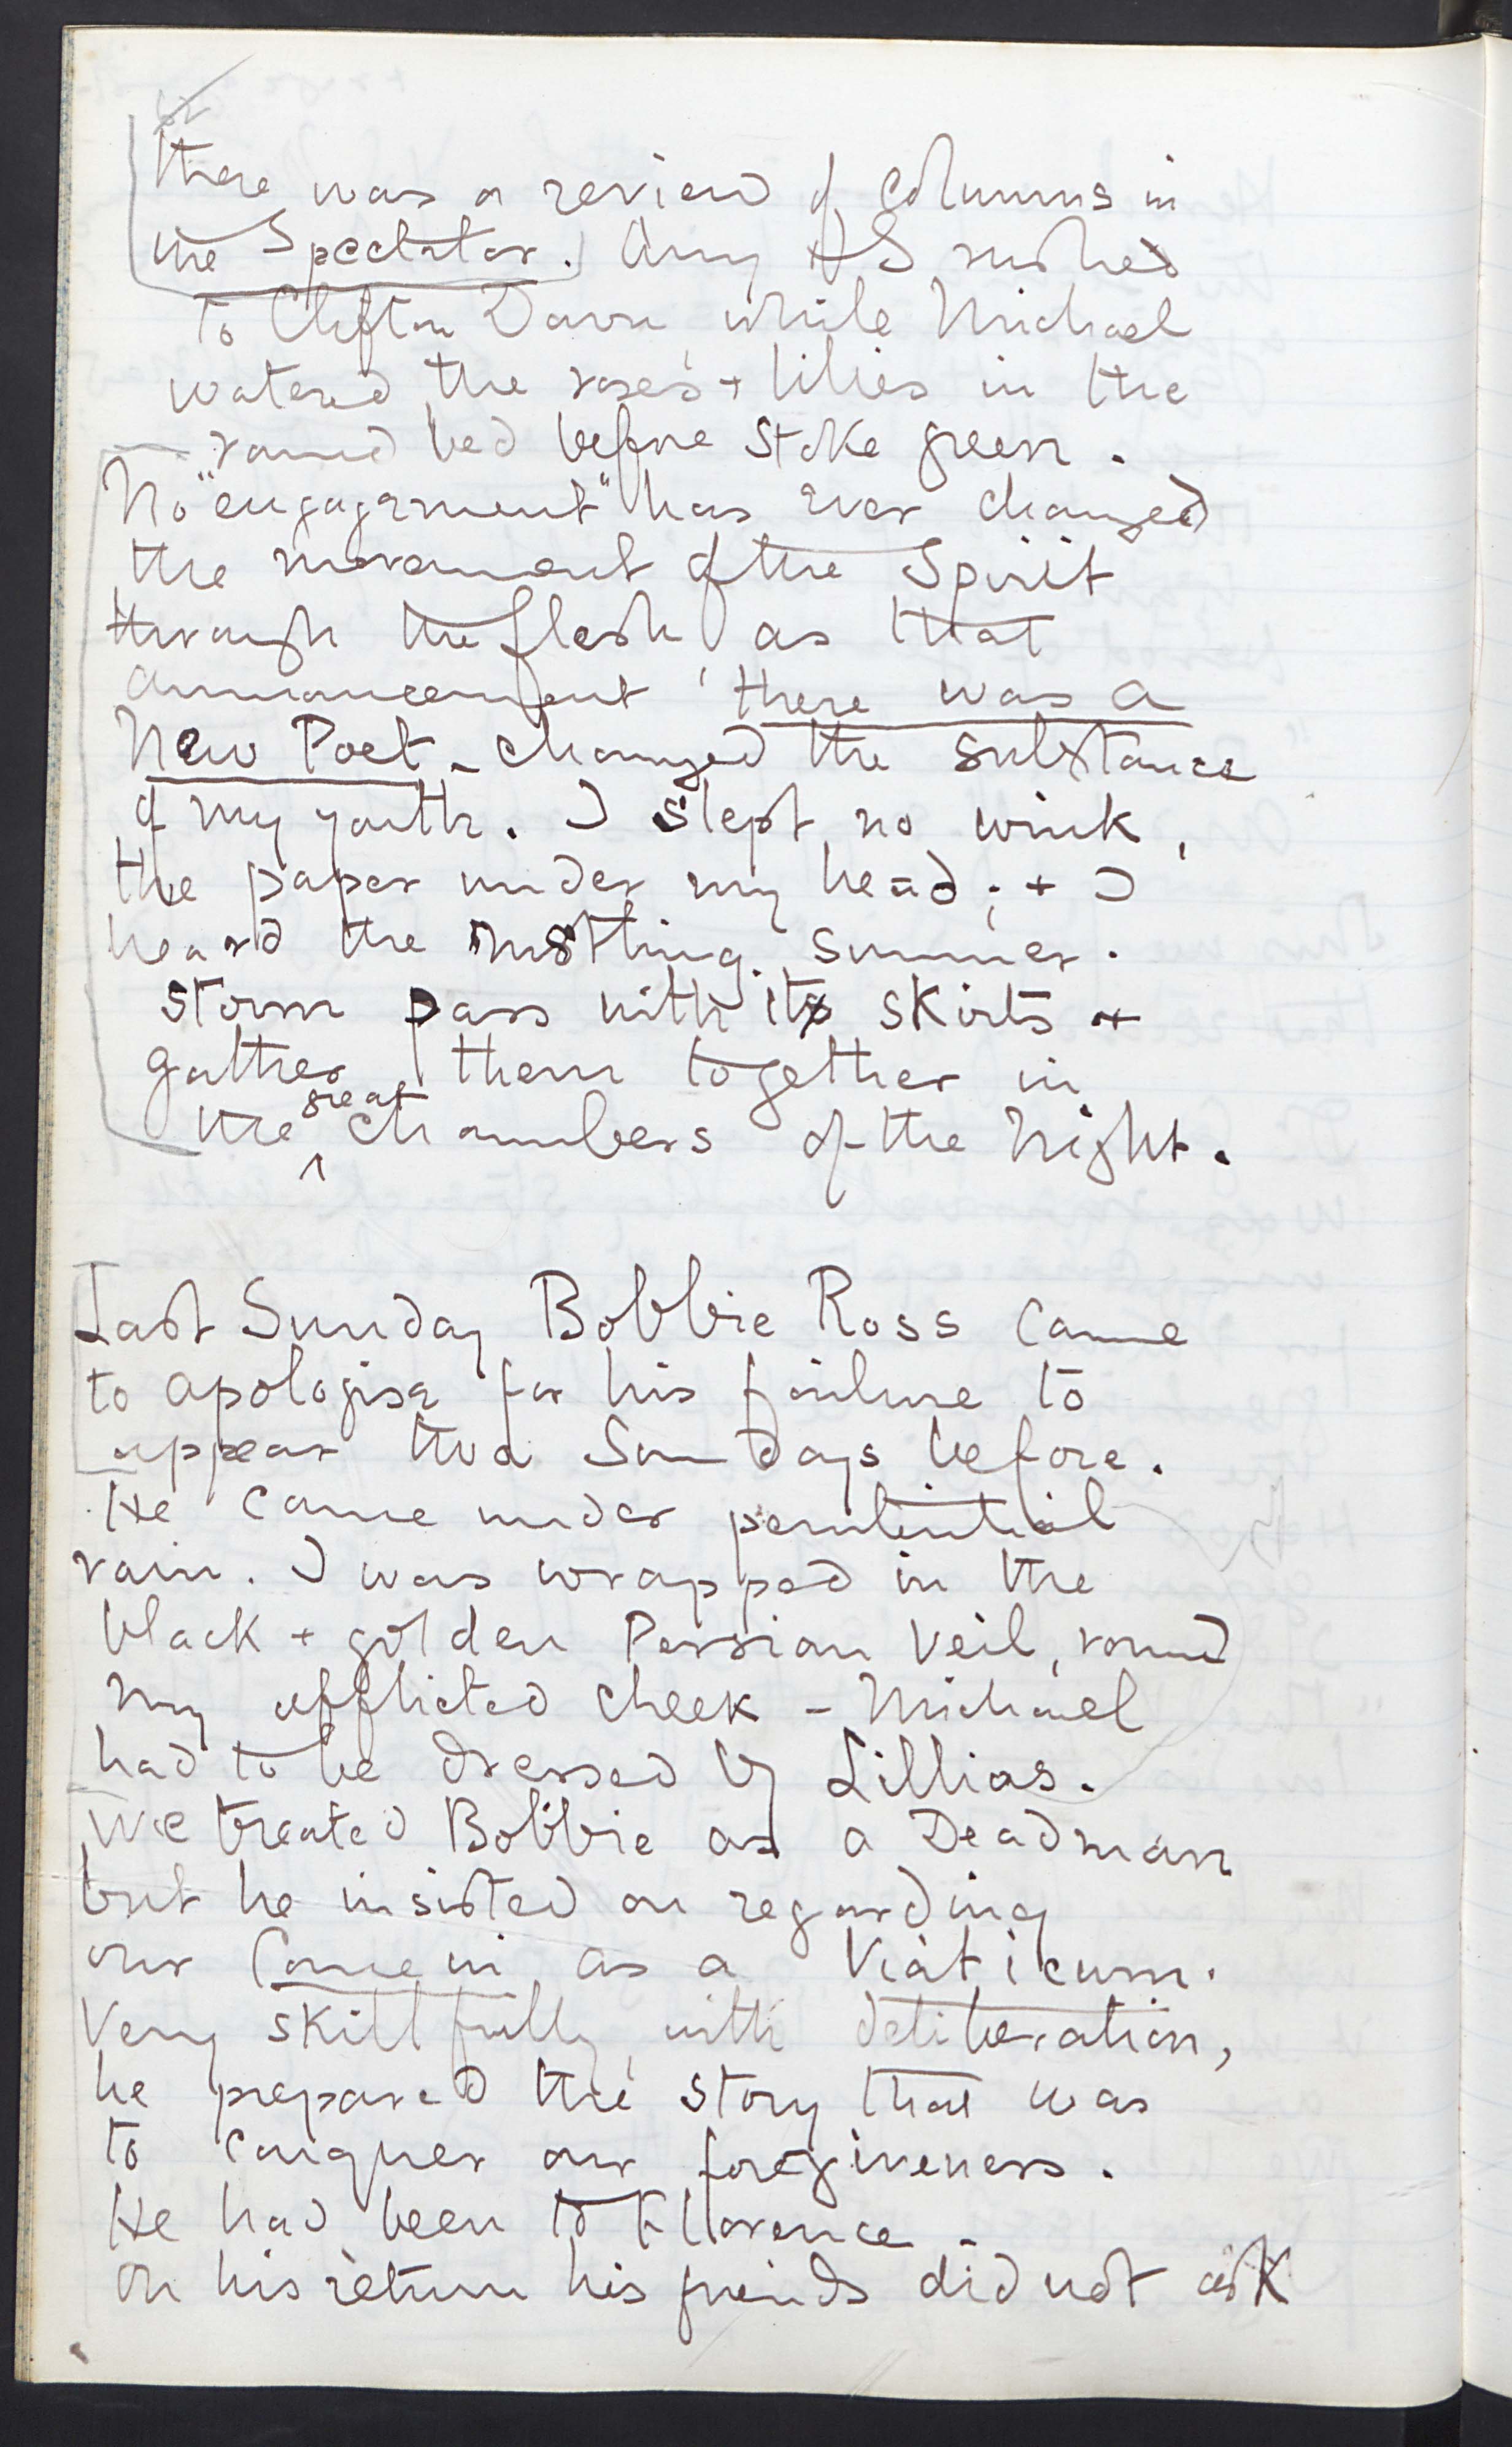 62
there was a review of columns in
the Spectator. Amy & S rushed
to Clifton Down while Michael
watered the roses + lilies in the
round bed before Stoke green.
No "engagement" has ever changed
the movement of the Spirit
through the flesh as that
announcement there was a
New Poet - changed the substance
of my youth. I slept no wink,
the paper under my head; + I
heard the rustling summer.
storm pass with its skirts +
gather them together in
the great chambers of the Night.
Last Sunday Bobbie Ross came
to apologise for his failure to
appear two Sundays before.
He came under penitential
rain. I was wrapped in the
black + golden Persian veil, round
my afflicted cheek - Michael
had to be dressed by Lillias.
We treated Bobbie as a Deadman
but he insisted on regarding
our Come in as a Viaticum.
Very skillfully, with deliberation,
he prepared the story that was
to conquer our foregiveness.
He had been to Fllorence -
on his return his friends did not ask